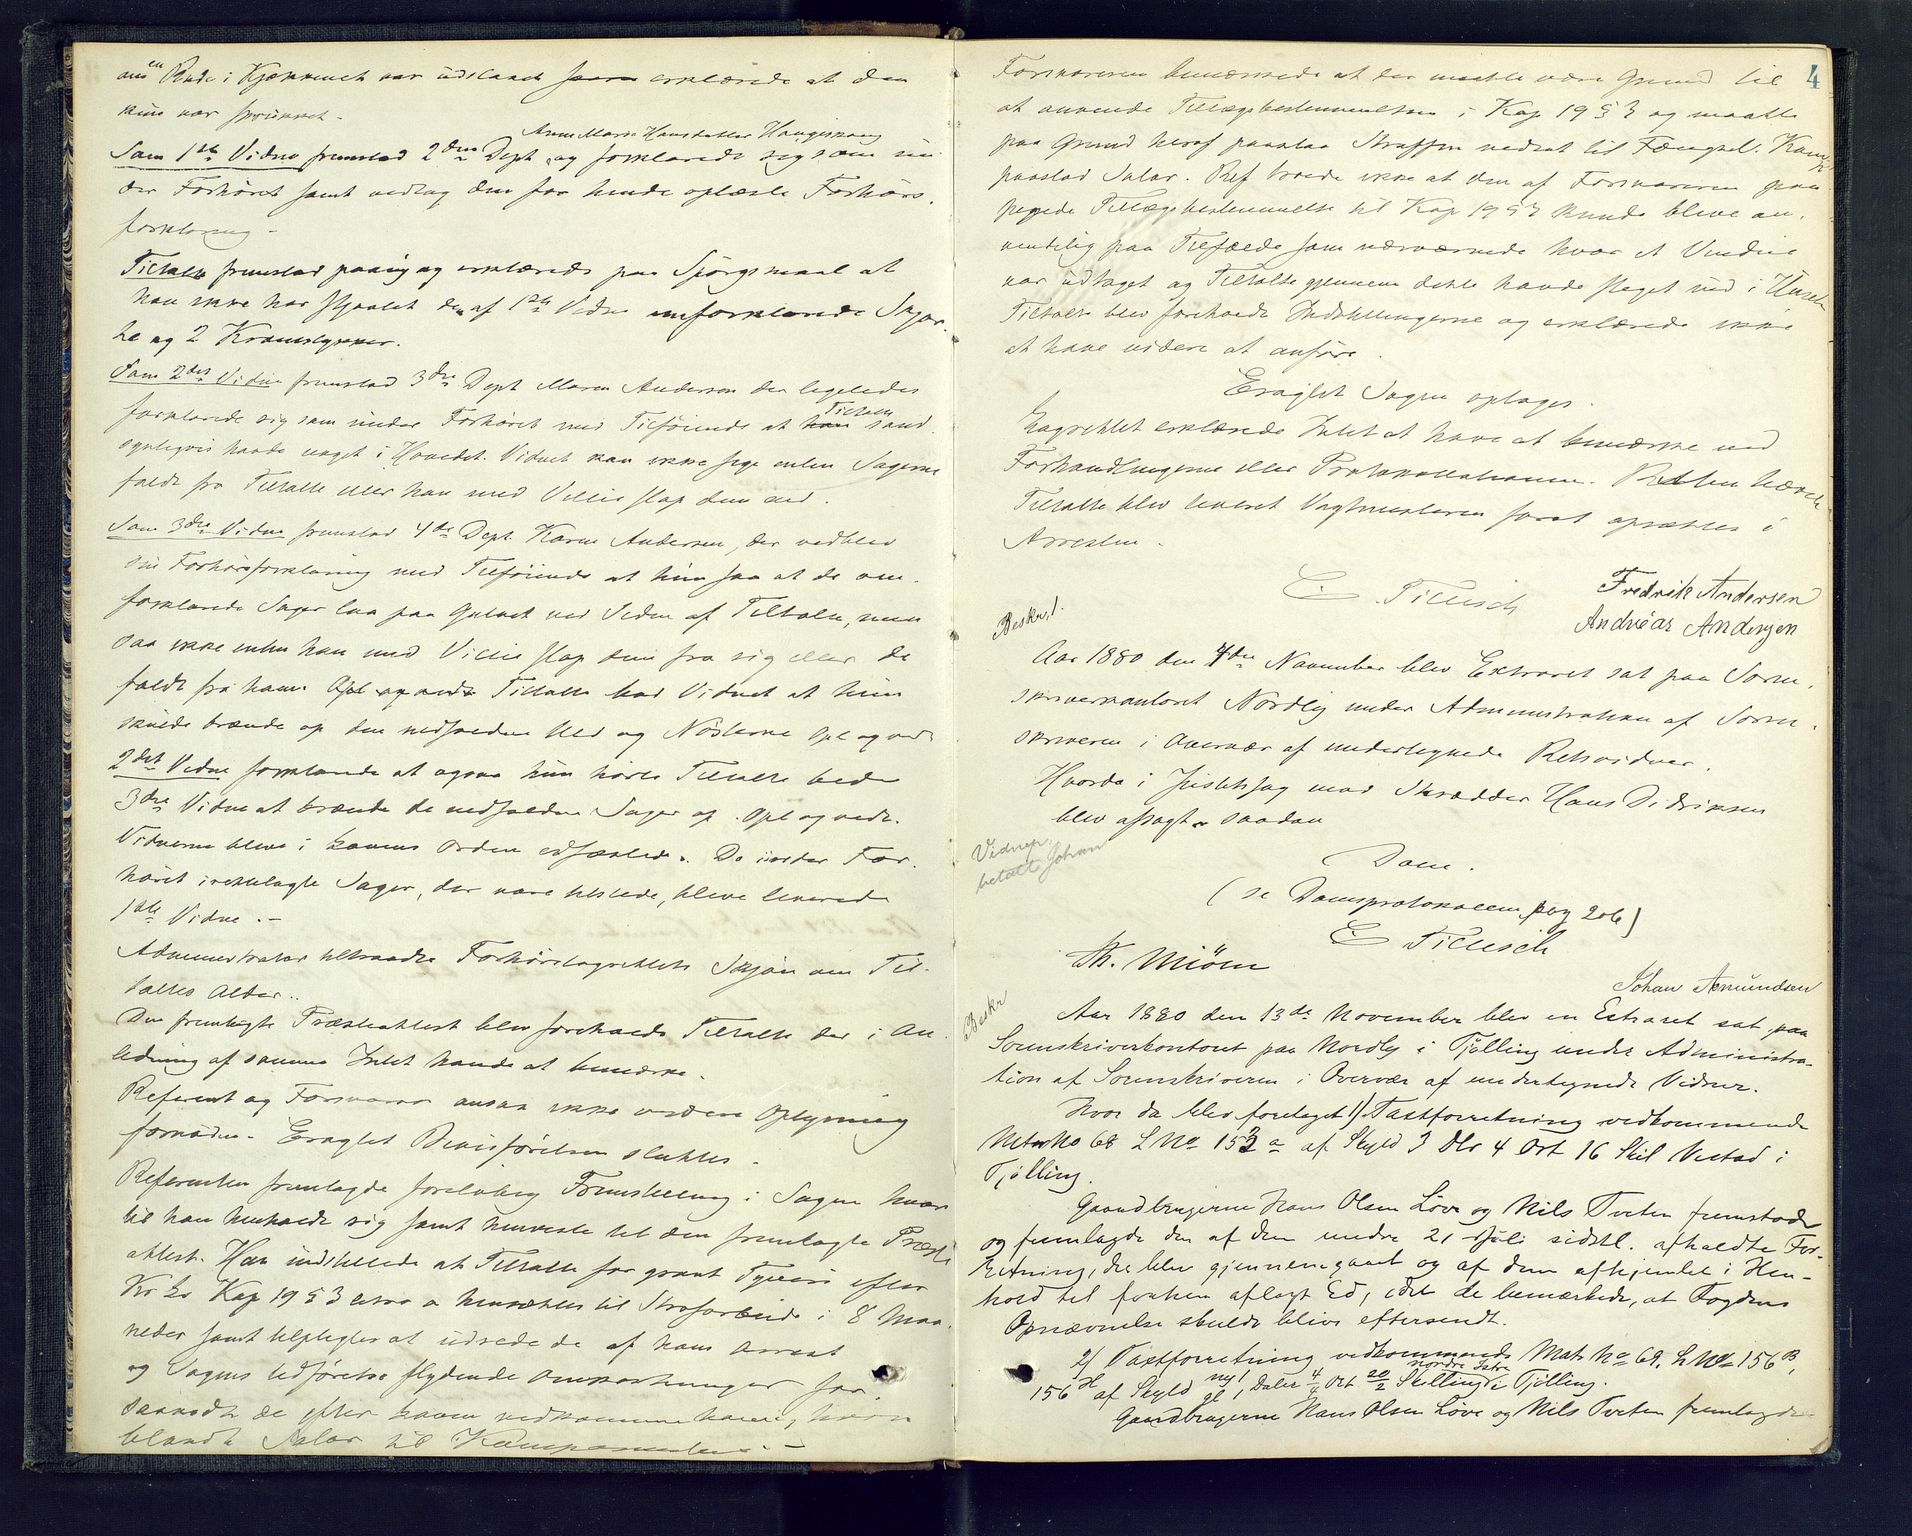 en Rude i Kjøkkenet var udslaaet erklærede at den
kun var sprukket.
Anne Marie Hansdatter Haugeskaug
Som 1ste Vidne fremstod 2den Dept. og forklarede sig som un
der Forhøret samt vedtog den for hende oplæste Forhørs
forklaring.
Tiltalte fremstod paany og erklærede paa Spørgsmaal at
han ikke har stjaalet de af 1ste Vidne omforklarede Skjor
te og 2 Kramstykker.
Som 2det Vidne fremstod 3die Dept Maren Andersen der ligeledes
forklarede sig som under Forhøret med Tilføiende at Tiltalte sand
synligvis havde noget i Hovedet. Vidnet kan ikke sige enten Sagerne
faldt fra Tiltalte eller han med Villie slap dem ned.
Som 3die Vidne fremstod 4de Dept. Karen Andersen, der vedblev
sin Forhørsforklaring med Tilføiende at hun saa at de om
forklarede Sager laa paa Gulvet ved Siden af Tiltalte, men
saa ikke enten han med Villie slap dem fra sig eller de
faldt fra ham. Opl og veds Tiltalte bad Vidnet at hun
skulde brænde op den nedfaldne Uld og Nøsterne Opl og veds
2det Vidne forklarede at ogsaa hun hørte Tiltalte bede
3die Vidne at brænde de nedfaldne Sager op. Opl og veds.
Vidnerne bleve i Lovens Orden edfæstede. De under For
høret irettelagte Sager, der vare tilstede, bleve leverede
1ste Vidne.
Administrator tiltraadte Forhørslagrettets Skjøn om Til-
taltes Alder.
Den fremlagte Præsteattest blev foreholdt Tiltalte der i An
ledning af samme Intet havde at bemærke.
Referent og Forsvarer ansaa ikke videre Oplysning
fornøden. Eragtet Bevisførelsen sluttes.
Referenten fremlagde foreløbig Fremstilling i Sagen hvor
til han henholdt sig samt henviste til den fremlagte Præste
attest. Han indstillede at Tiltalte for grovt Tyveri efter
Kr Lv Kap 19 § 3 hensættes til Strafarbeide i 8 Maa
neder samt tilpligtes at udrede de af hans Arrest
og Sagens Udførelse flydende Omkostninger for
saavidt de efter Loven vedkomme ham, hvori
blandt Salær til
4
Forsvareren bemærkede at der maatte være Grund til
at anvende Tillægsbestemmelsen i Kap 19 § 3 og maatte
paa Grund heraf paastaa Straffen nedsat til Fængsel. Han
paastod Salær. Ref troede ikke at den af Forsvareren paa
pegede Tillægsbestemmelse til Kap 19 § 3 kunde blive an
vendelig paa Tilfælde som nærværende hvor et Vindue
var udtaget og Tiltalte gjennem dette havde steget ind i Huset
Tiltalte blev foreholdt Indstillingerne og erklærede ikke
at have videre at anføre.
Eragtet Sagen optages.
Lagrettet erklærede Intet at have at bemærke ved
Forhandlingerne eller Protokollationen. Retten hævet
Tiltalte blev leveret Vagtmesteren for at opsættes i
Arresten.
E. Tillisch Fredrik Andersen
Andreas Andersen
Beskr.
Aar 1880 den 4de November blev Extraret sat paa Soren
skriverkontoret Nordby under Administration af Soren
skriveren i Overvær af undertegnede Retsvidner.
Hvorda i Justitssag mod Skrædder Hans Didriksen
blev afsagt saadan
Vidnep.
betalt Johan
Dom.
(se Domsprotokollen pag 206)
E Tillisch
Th. Miøen
Johan Amundsen
Beskr
Aar 1880 den 13de November blev en Extraret sat paa
Sorenskriverkontoret paa Nordby i Tjølling under Administra-
tion af Sorenskriveren i Overvær af undertegnede Vidner.
Hvor da blev foretaget 1) Taxtforretning vedkommende
Matr No 68 L No 152a af Skyld 3 Dlr 4 Ort 16 Skil Vestad i
Tjølling.
Gaardbrugerne Hans Olsen Løve og Nils Tveten fremstode
og fremlagde den af dem under 21 Juli sidstl. afholdte For-
retning, der blev gjennemgaaet og af dem afhjemlet i Hen-
hold til forhen aflagt Ed, idet de bemærkede, at Fogdens
Opnævnelse skulde blive eftersendt.
2) Taxtforretning vedkommende Matr No 69. L No 156B,
156H af Skyld ny 1, Daler 4/4 Ort 20/2 Skilling nordre Istre i Tjølling.
gl
Gaardbrugerne Hans Olsen Løve og Nils Tveten fremlagde